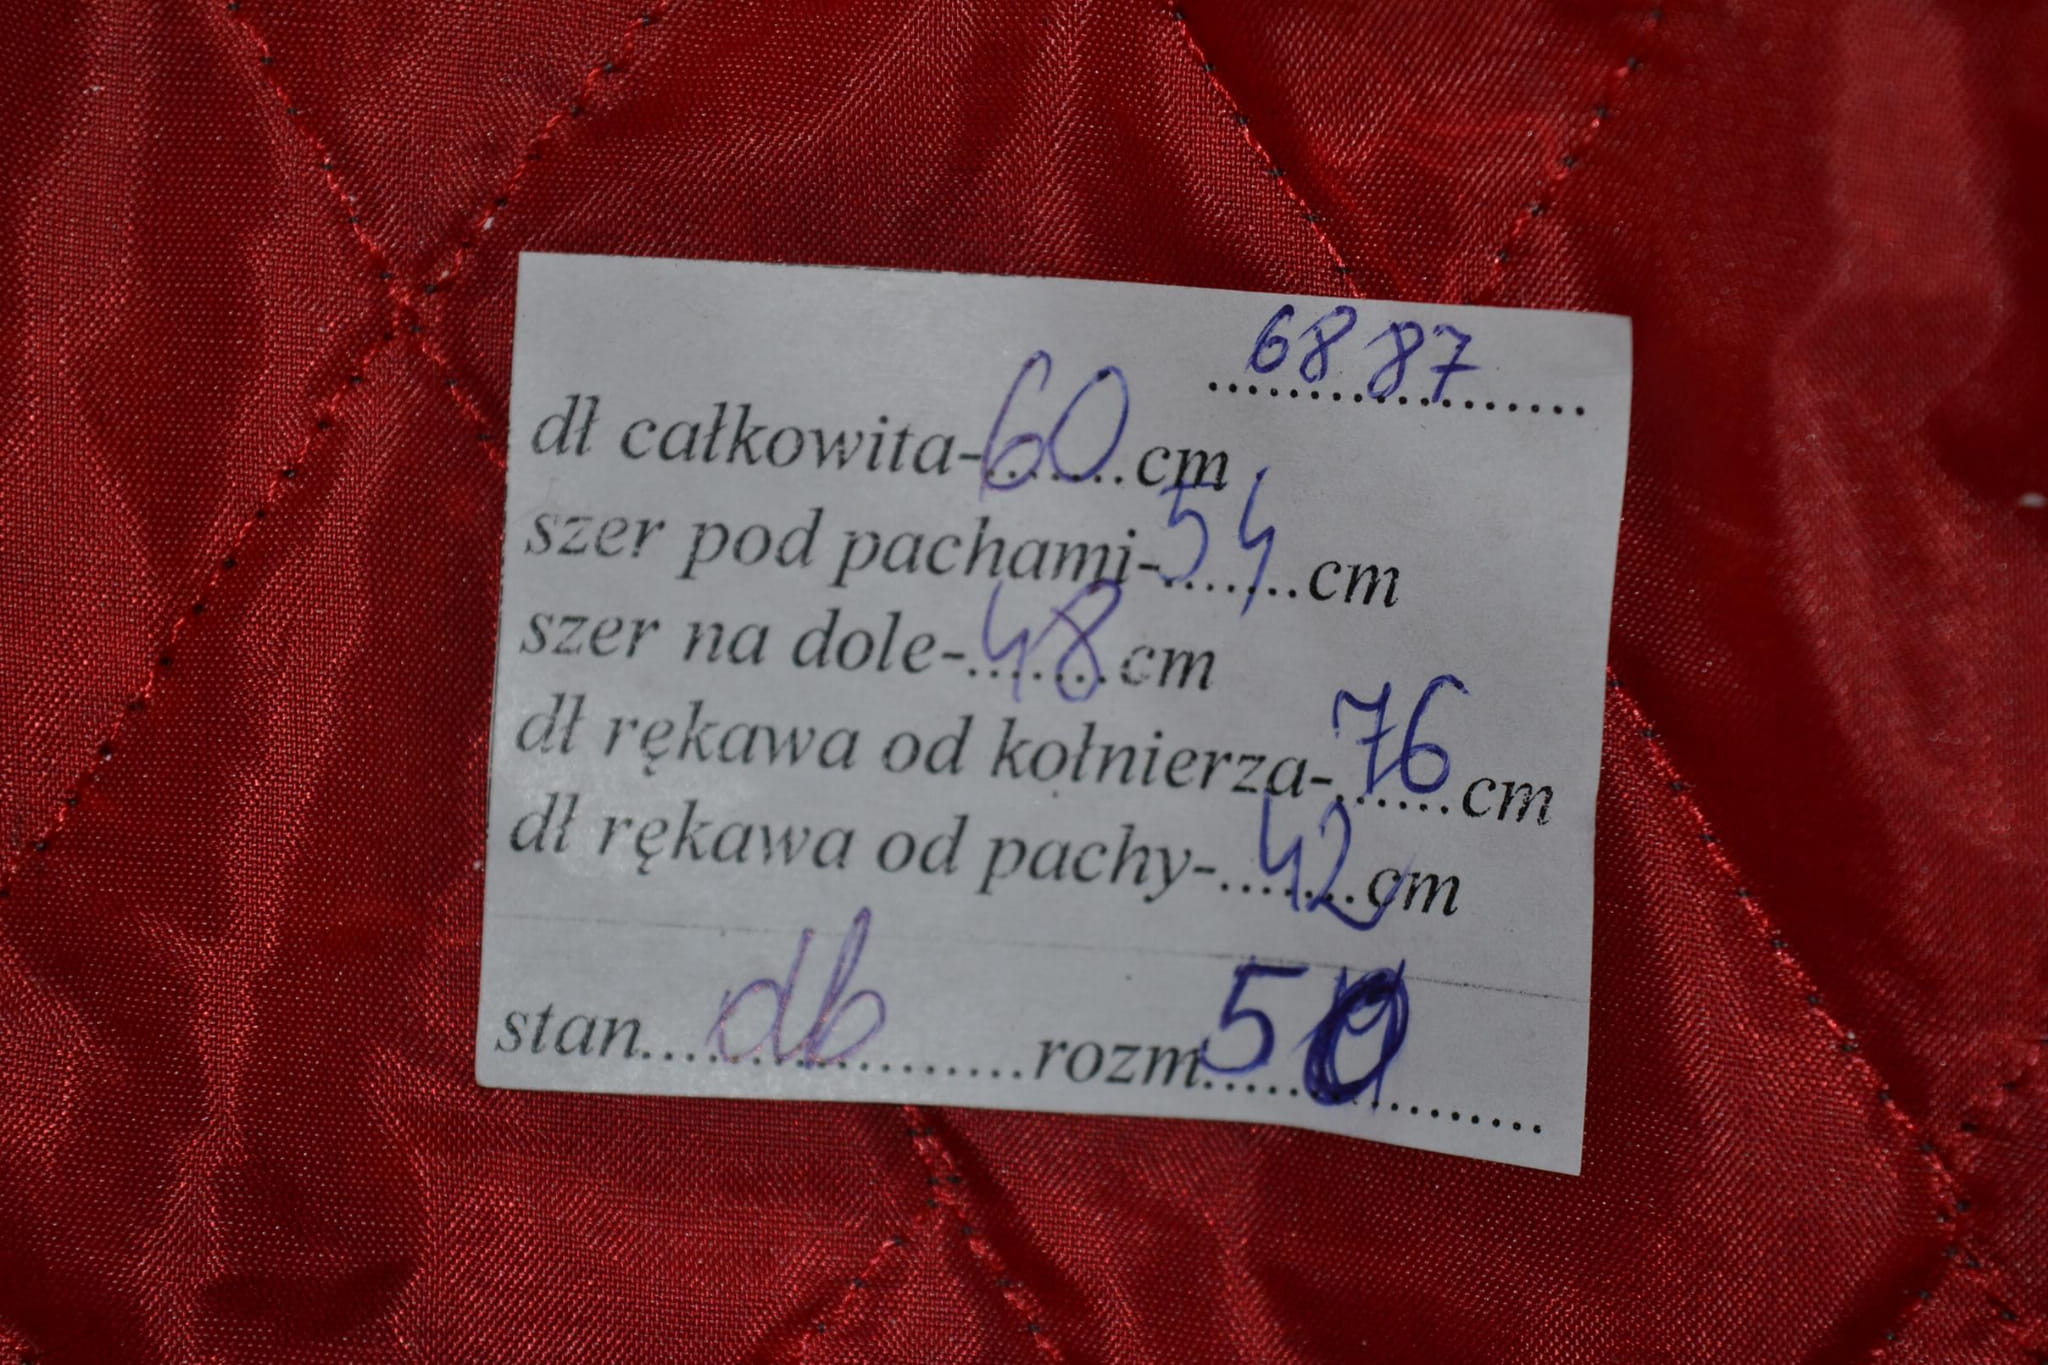 6887
dł całkowita-60 cm
szer pod pachami-54 cm
szer na dole-48 cm
dł rękawa od kołnierza-76 cm
dł rękawa od pachy-42 cm
stan db rozm 50